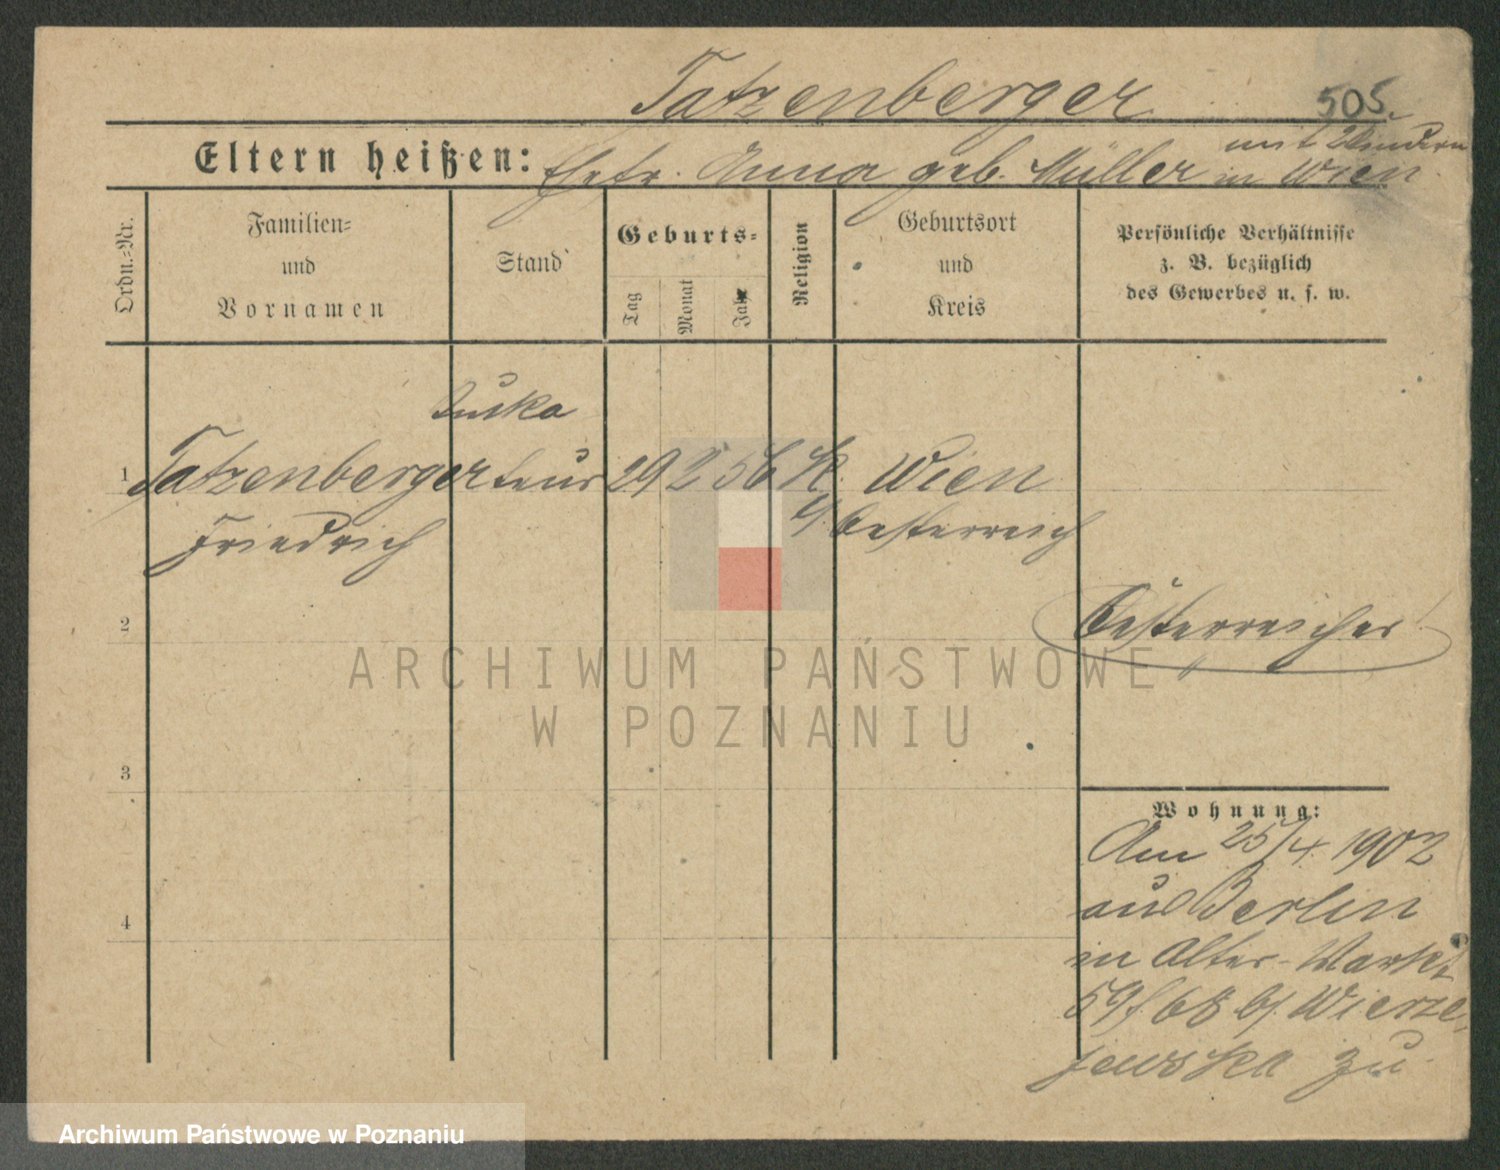 Tatzenberger 505.
Eltern heißen: Ehefr. Anna geb. Müller mit Kindern
in Wien
Ordn.-Nr.
Familien-
und
Vornamen
Stand
Geburts-
Tag
Monat
Jahr
Religion
Geburtsort
und
Kreis
Persönliche Verhältnisse
z. B. bezüglich
des Gewerbes u. s. w.
1 Tatzenberger 29 2 56 K. Wien
Friedrich Oesterreich
2 Oesterreicher
ARCHIWUM PAŃSTWOWE
W POZNANIU
3
Wohnung:
Am 25/4. 1902
aus Berlin
4
in Alter-Markt
59/68 b/ Wierze-
jewska zu.
Archiwum Państwowe w Poznaniu